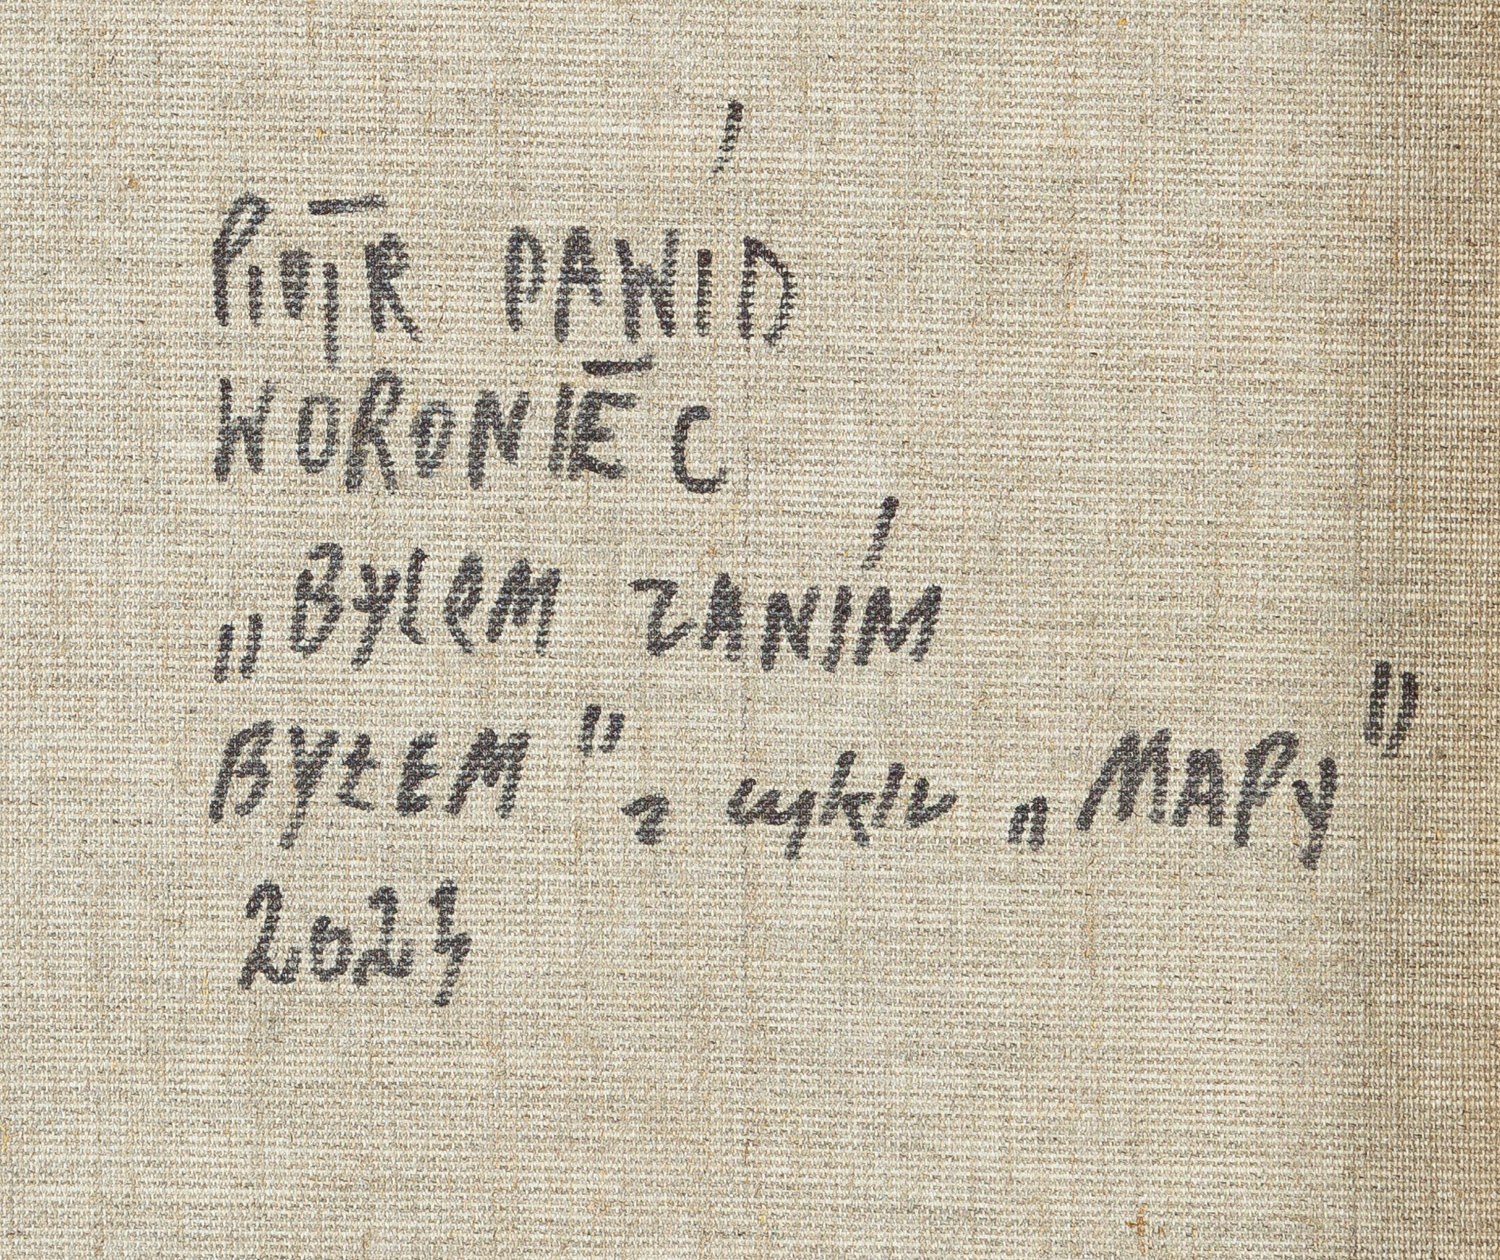 PIOTR DAWID
WORONIEC
„BYłEM ZANIM
BYŁEM" z cyklu „MAPY"
2023